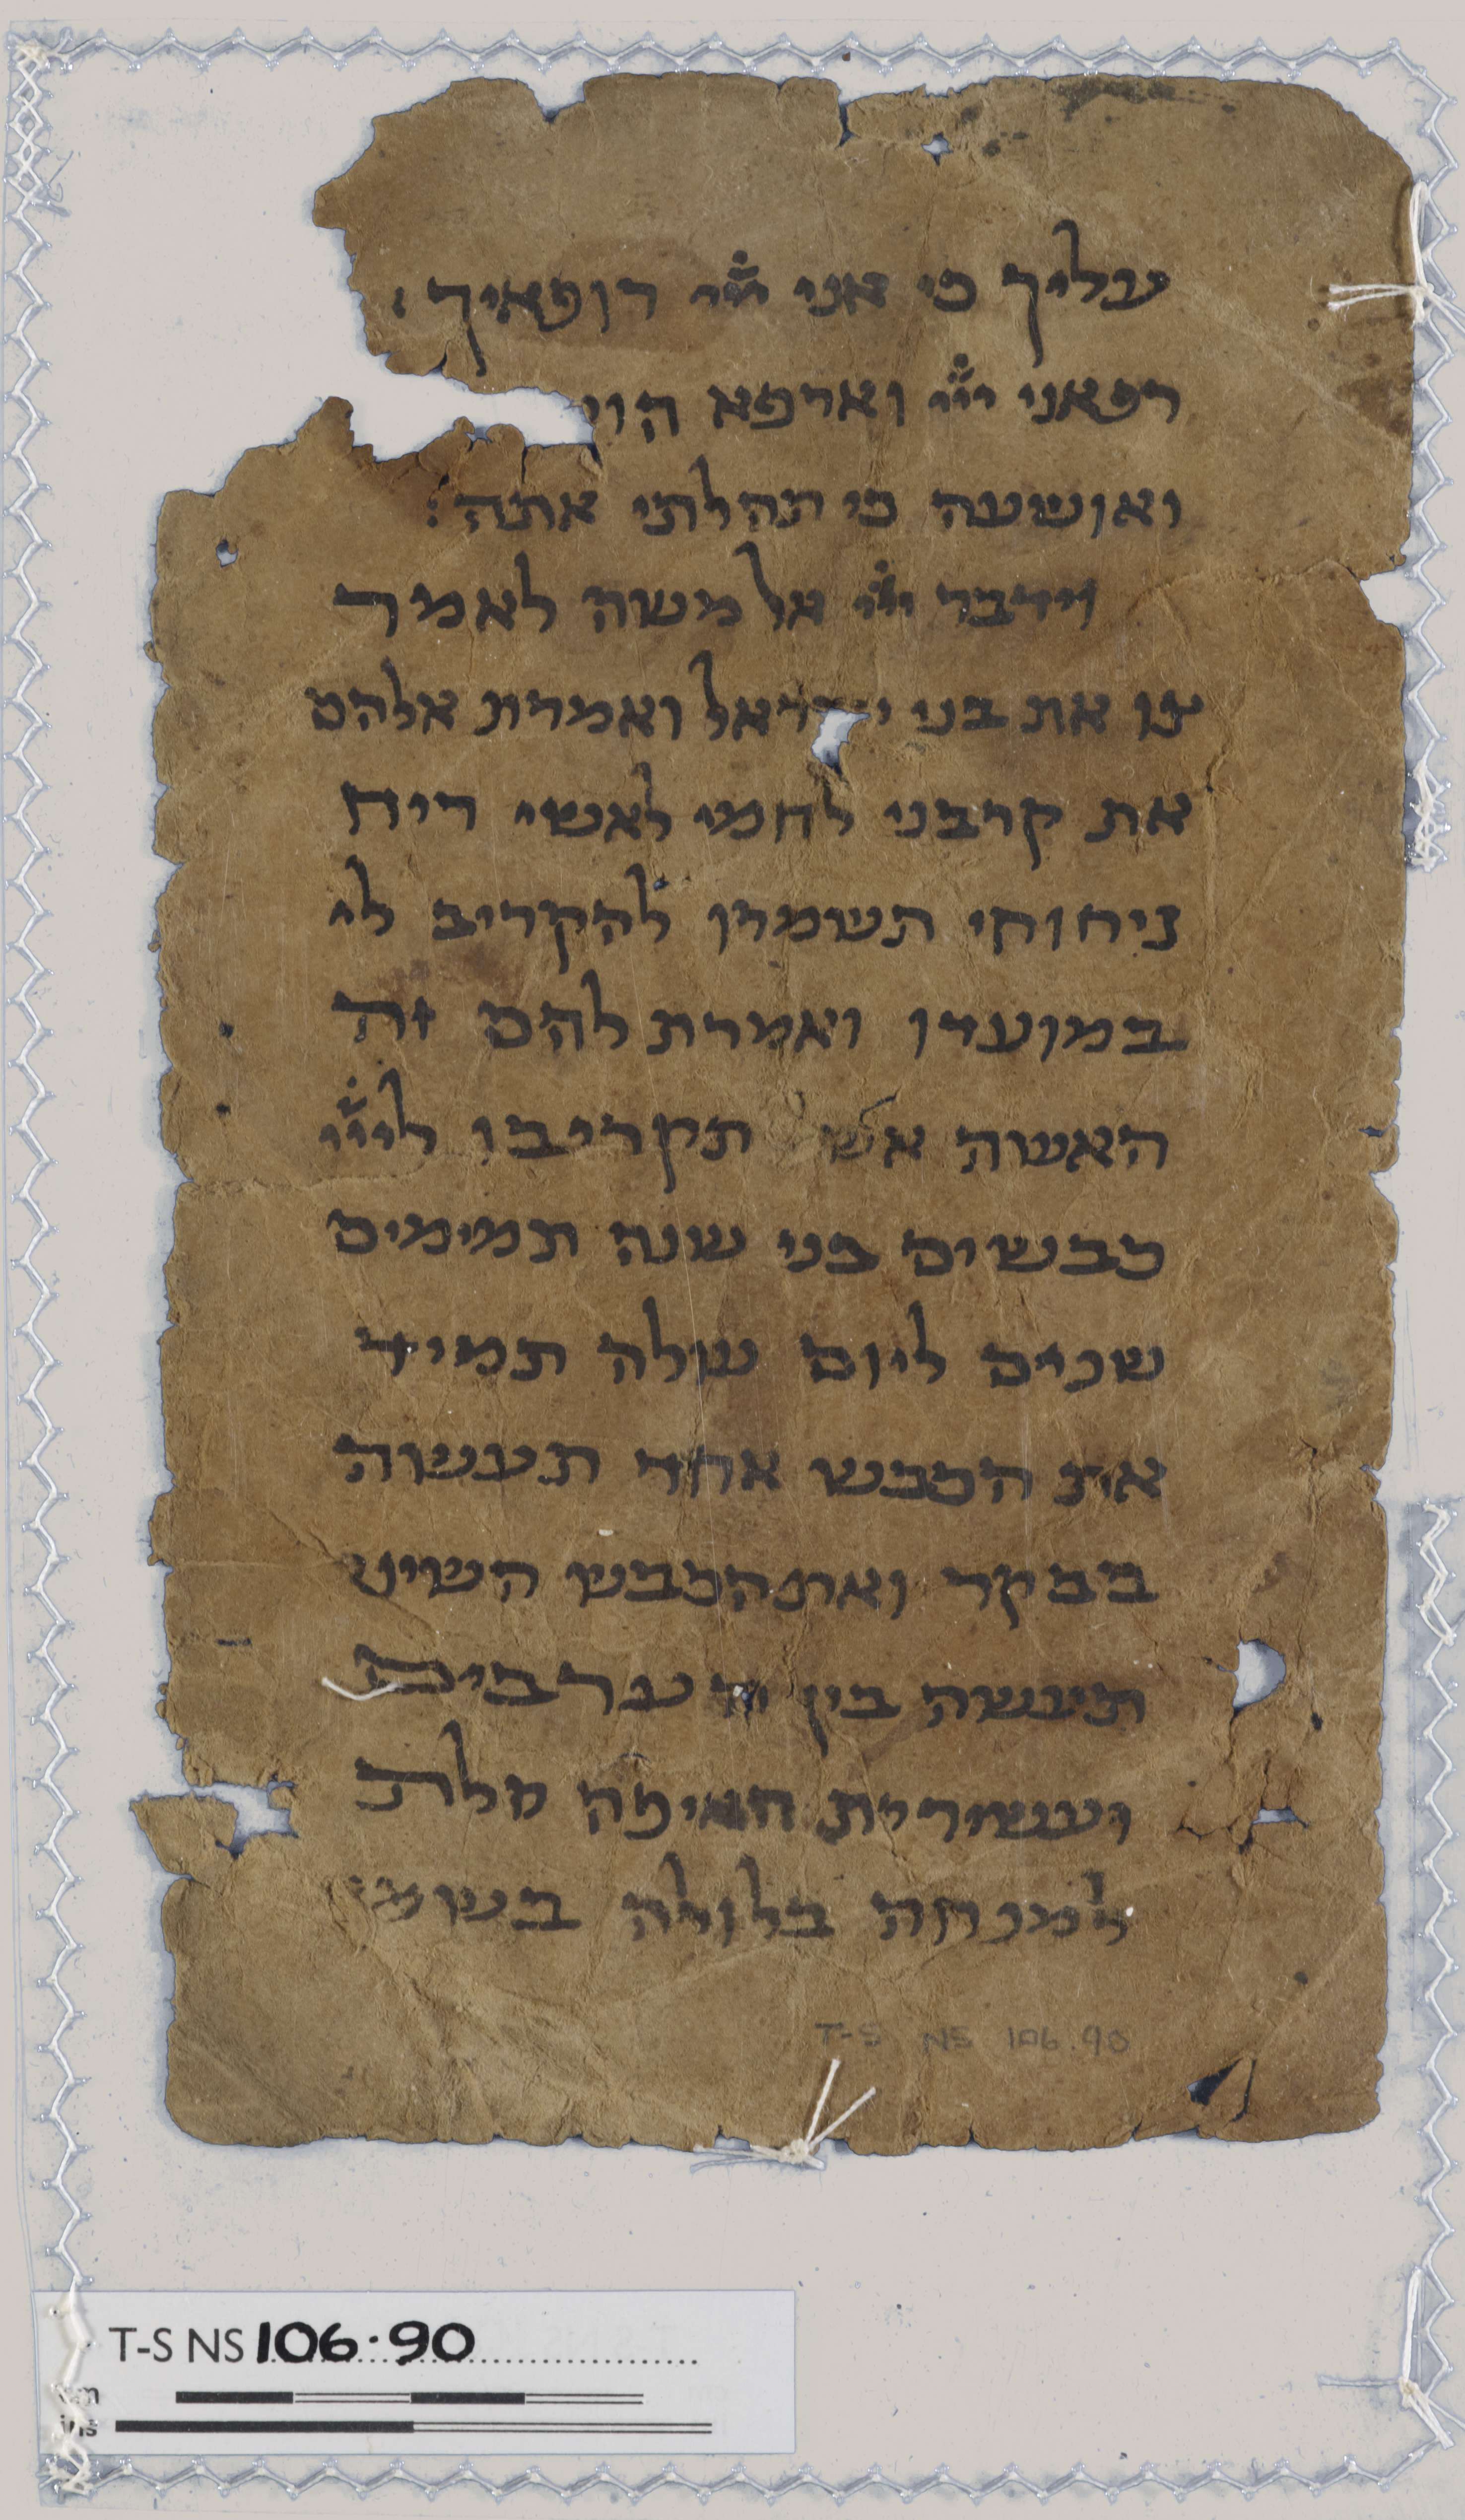 עליך כי אני ייי רופאיך
רפאני ייי וארפא הו
ואושעה כי תהלתי אתה:
וידבר ייי אל משה לאמר
צו את בני ישראל ואמרת אלהם
את קרבני לחמי לאשי ריח
ניחוחי תשמרו להקריב לי
במועדו ואמרת להם זה
האשה אש תקריבו לייי
כבשים בני שנה תמימים
שנים ליום עולה תמיד
את הכבש אחד תעשה
בבקר ואת הכבש השיני
תעשה בין הערבים
ועשירית האיפה סלת
למנחה בלולה בשמן
T-S NS 106.90
T-S NS 106.90
cm
ins